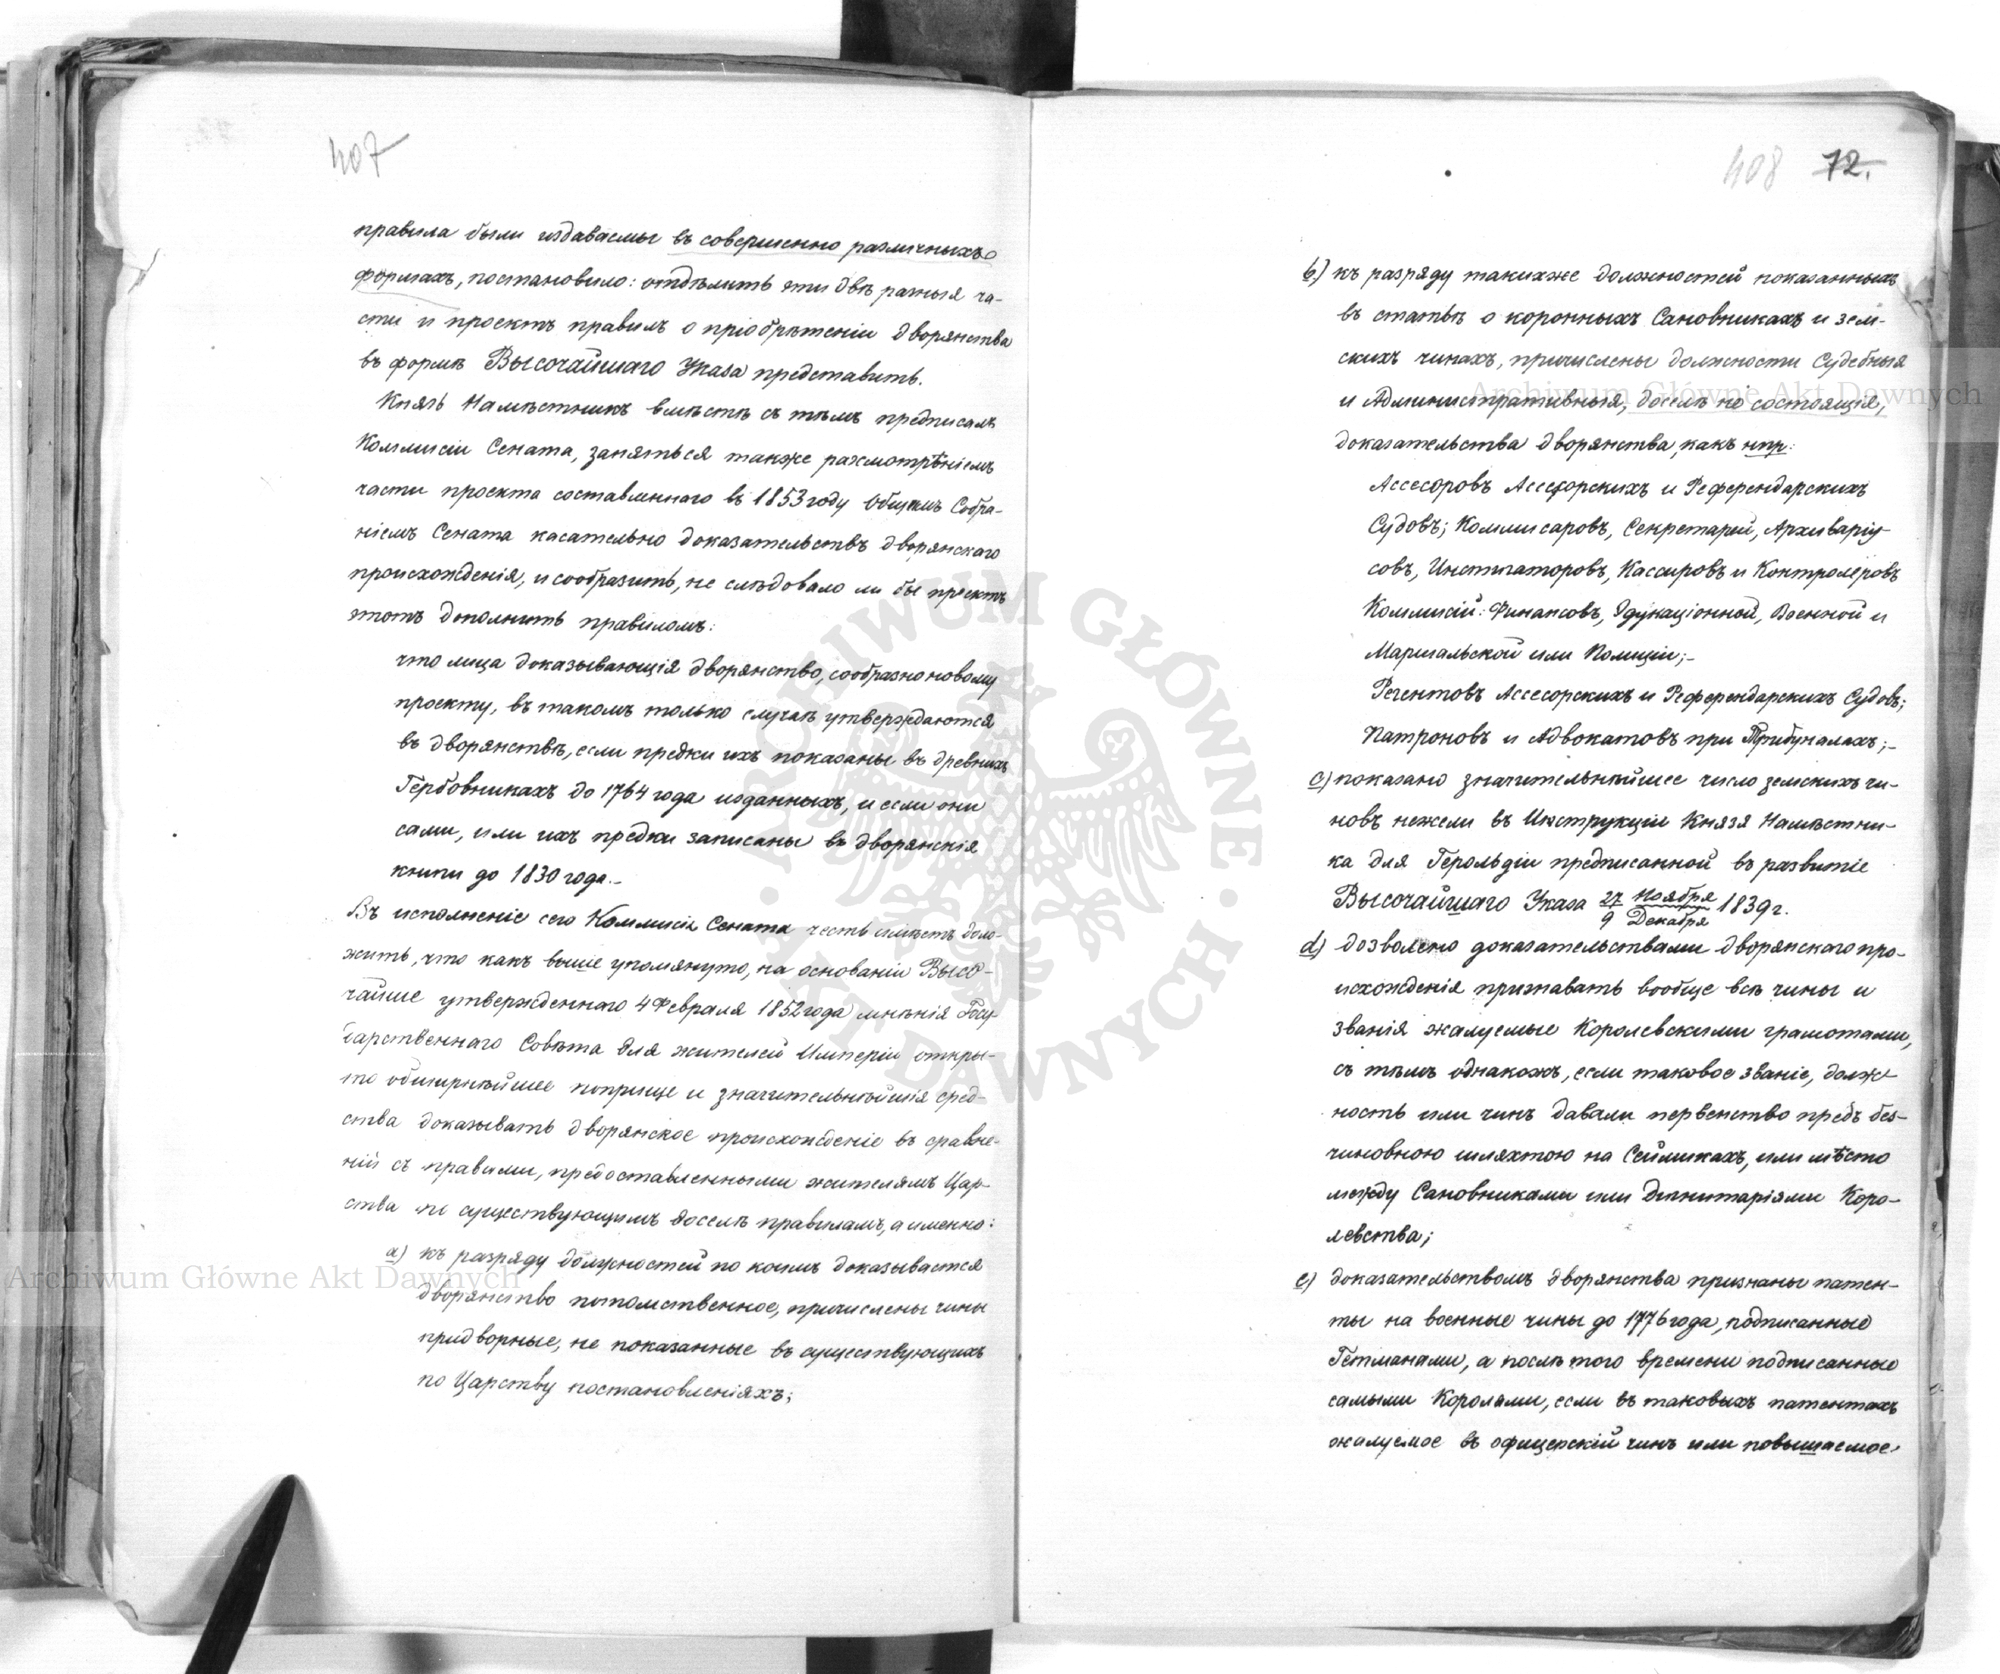 407
правила были издаваемы въ совершенно различныхъ
формахъ, постановило: отдѣлить эти двѣ разныя ча-
сти и проектъ правилъ о пріобрѣтеніи дворянства
въ формѣ Высочайшаго Указа представить.
Князь Намѣстникъ вмѣстѣ съ тѣмъ предписалъ
Коммисіи Сената, заняться также разсмотрѣніемъ
части проекта составленнаго въ 1853 году Общимъ Собра-
ніемъ Сената касательно доказательствъ дворянскаго
происхожденія, и сообразить, не слѣдовало ли бы проектъ
этотъ дополнить правиломъ:
что лица доказывающія дворянство, сообразно новому
проекту, въ такомъ только случаѣ утверждаются
въ дворянствѣ, если предки ихъ показаны въ древнихъ
Гербовникахъ до 1764 года изданныхъ, и если они
сами, или ихъ предки записаны въ дворянскія
книги до 1830 года.-
Въ исполненіе сего Коммисія Сената честь имѣетъ доло-
жить, что какъ выше упомянуто, на основаніи Высо-
чайше утвержденнаго 4 Февраля 1852 года мнѣнія Госу-
дарственнаго Совѣта для жителей Имперіи откры-
то обширнѣйшее поприще и значительнѣйшія сред-
ства доказывать дворянское происхожденіе въ сравне-
ніи съ правами, предоставленными жителямъ Цар-
ства по существующимъ доселѣ правиламъ, а именно:
a) къ разряду должностей по коимъ доказывается
дворянство потомственное, причислены чины
придворные, не показанные въ существующихъ
по Царству постановленіяхъ;
408 72.
b) къ разряду такихже должностей показанныхъ
въ статьѣ о коронныхъ Сановникахъ и зем-
скихъ чинахъ, причислены должности Судебныя
и Административныя, доселѣ не состоящія,
доказательства дворянства, какъ нпр:
Ассесоровъ Ассесорскихъ и Референдарскихъ
Судовъ; Коммисаровъ, Секретарей, Архиваріу-
совъ, Инстигаторовъ, Кассировъ и Контролеровъ
Коммисій: Финансовъ, Эдукаціонной, Военной и
Маршальской или Полиціи;-
Регентовъ Ассесорскихъ и Референдарскихъ Судовъ;
Патроновъ и Адвокатовъ при Трибуналахъ;-
c) показано значительнѣйшее число земскихъ чи-
новъ нежели въ Инструкціи Князя Намѣстни-
ка для Герольдіи предписанной въ развитіе
Высочайшаго Указа 27 Ноября / 9 Декабря 1839 г.
d) дозволено доказательствами дворянскаго про-
исхожденія признавать вообще всѣ чины и
званія жалуемые Королевскими грамотами,
съ тѣмъ однакожъ, если таковое званіе, долж-
ность или чинъ давали первенство предъ без-
чиновною шляхтою на Сеймикахъ, или мѣсто
между Сановниками или Дигнитаріями Коро-
левства;
e) доказательствомъ дворянства признаны патен-
ты на военные чины до 1776 года, подписанные
Гетманами, а послѣ того времени подписанные
самыми Королями, если въ таковыхъ патентахъ
жалуемое въ офицерскій чинъ или повышаемое
Archiwum Główne Akt Dawnych
Archiwum Główne Akt Dawnych
ARCHIWUM GŁÓWNE AKT DAWNYCH